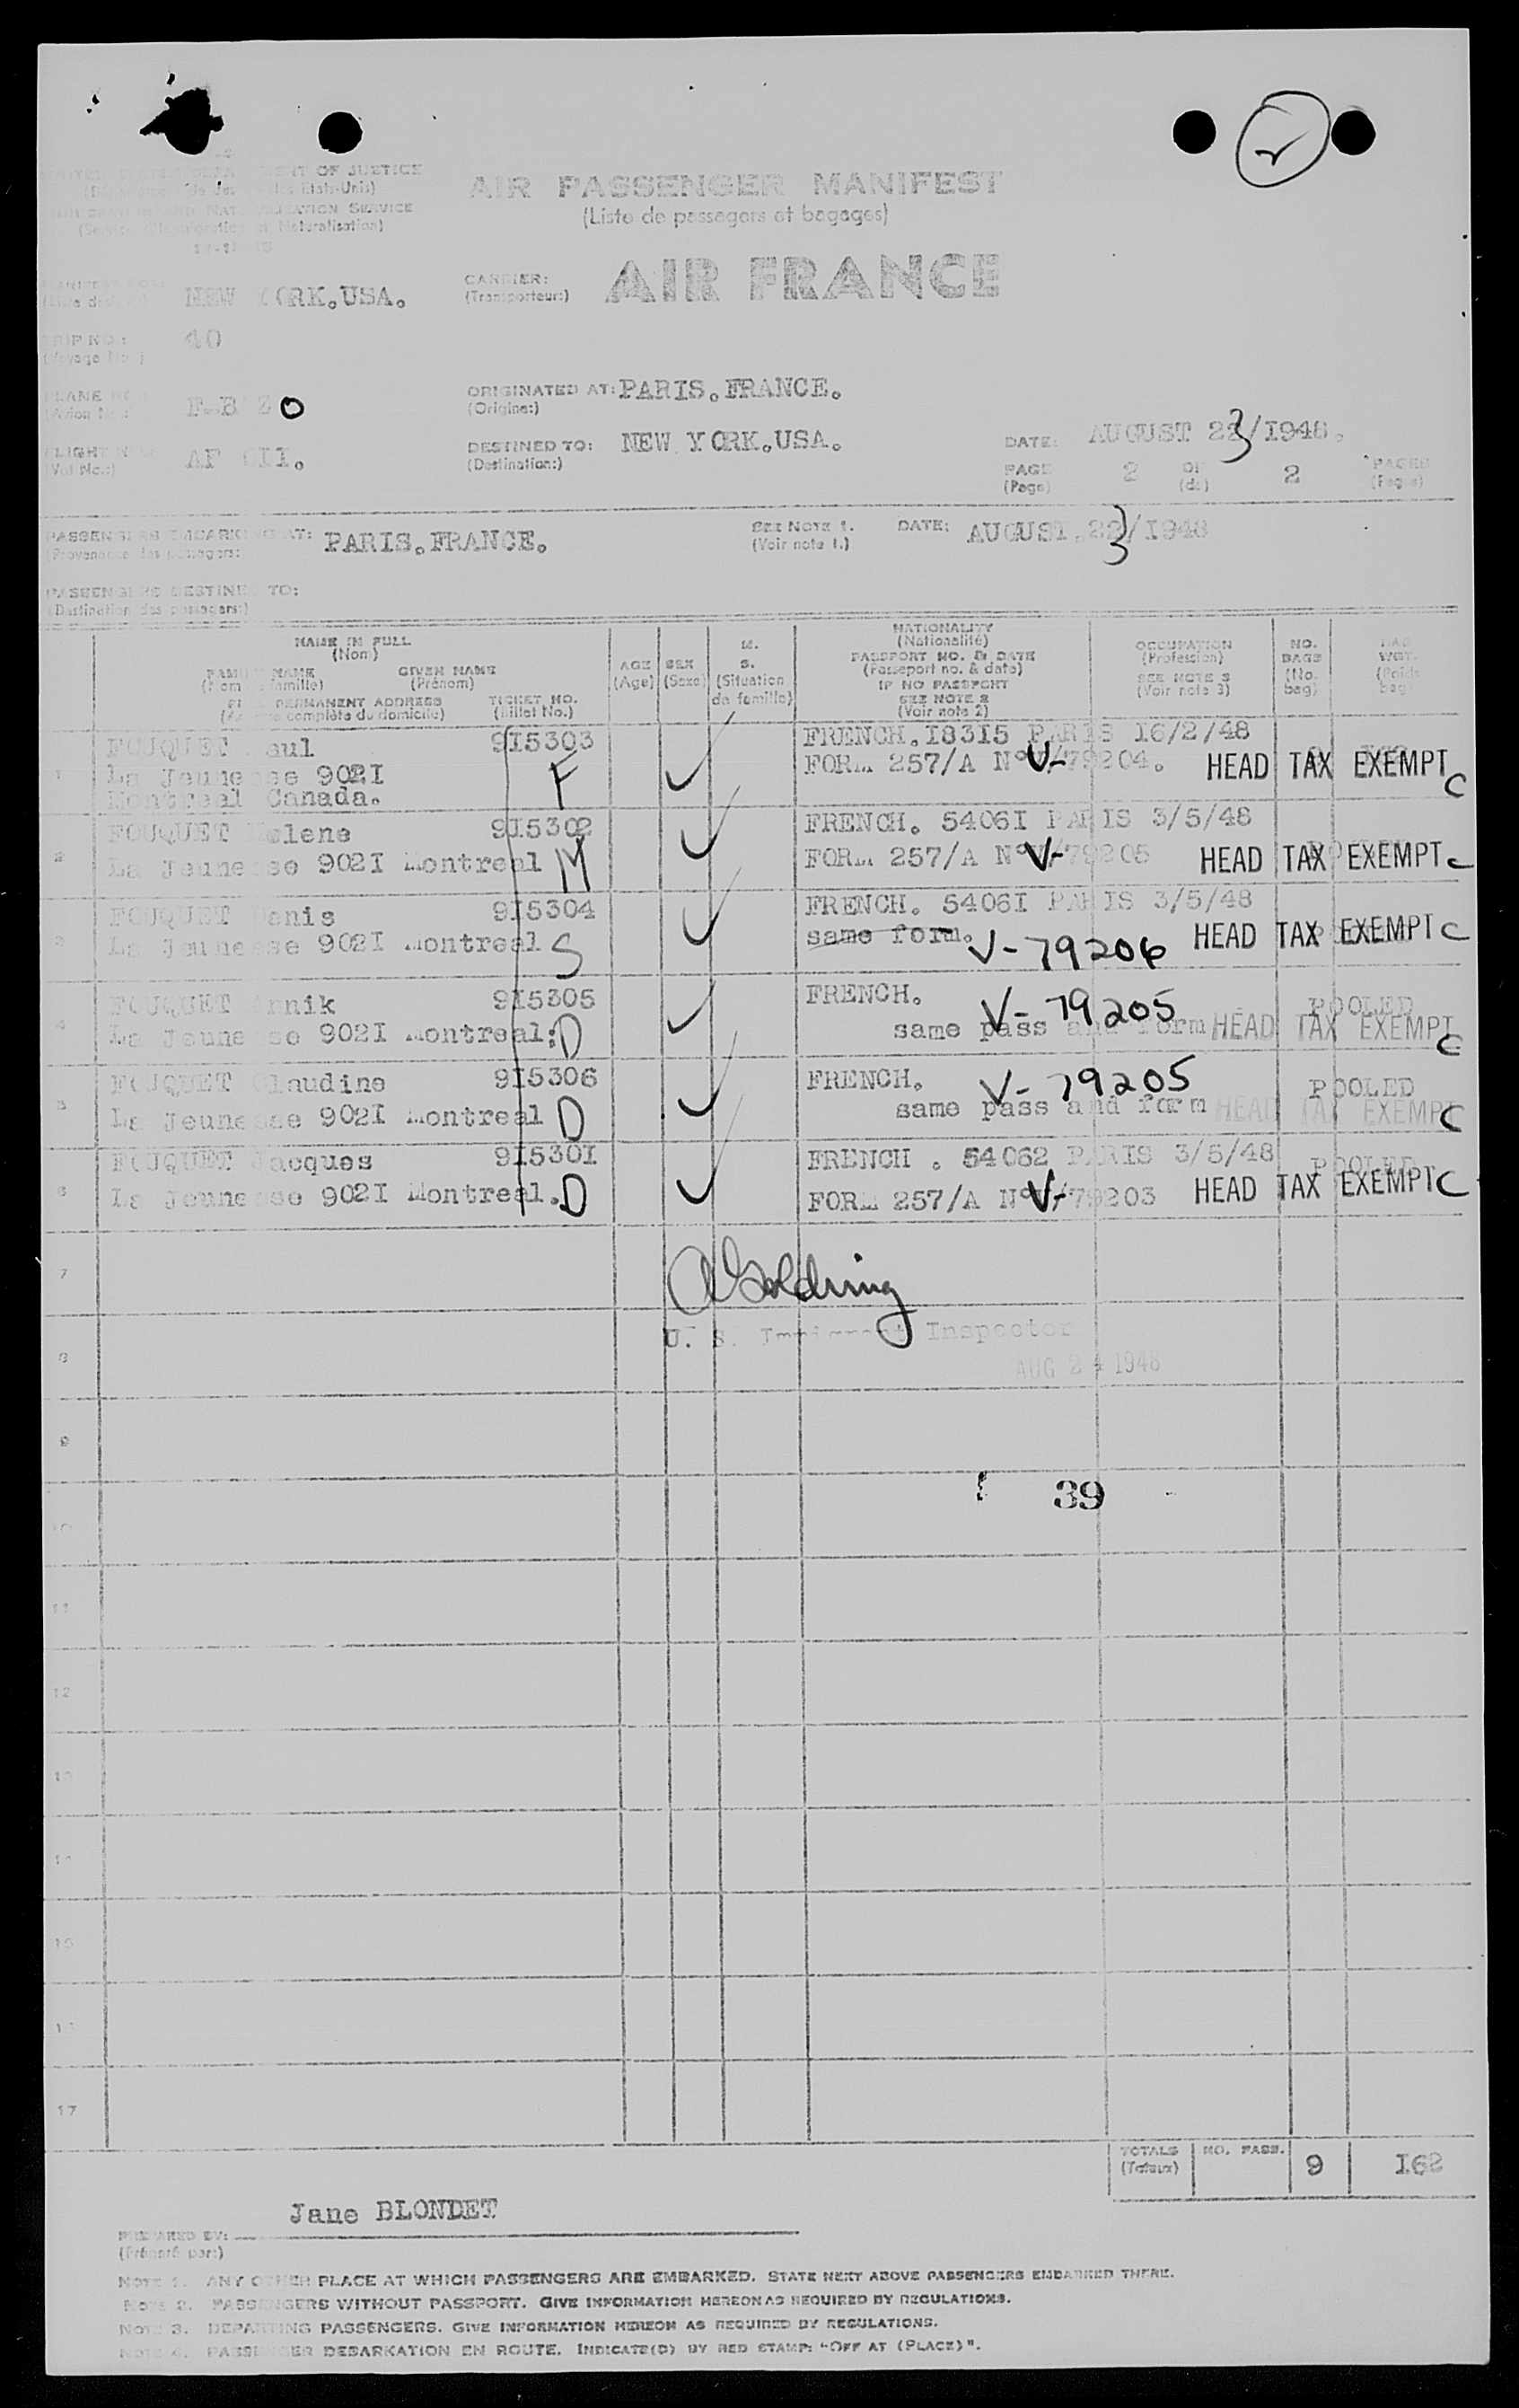 OF JUSTICE
AIR PASSENGER MANIFEST
(Liste de passagers et bagages)
SERVICE
CARRIER:
(Transporteur:)
AIR FRANCE
NEW YORK.USA.
40
ORIGINATED AT: PARIS.FRANCE.
(Origine:)
DESTINED TO: NEW YORK.USA.
(Destination:)
DATE: AUGUST 23/1948.
PAGE 2 OF 2 PAGES
(Page) (de) (Pages)
PASSENGERS EMBARKING AT: PARIS.FRANCE.
SEE NOTE 1.
(Voir note 1.)
DATE: AUGUST.23/1948
PASSENGERS DESTINED TO:
(Destination des passagers:)
NAME IN FULL
(Nom)
FAMILY NAME GIVEN NAME
(Prénom)
PERMANENT ADDRESS TICKET NO.
complète du domicile) (Billet No.)
AGE
(Age)
SEX
(Sexe)
M.
S.
(Situation
de famille)
NATIONALITY
(Nationalité)
PASSPORT NO. & DATE
(Passeport no. & date)
IF NO PASSPORT
SEE NOTE 2
(Voir note 2)
OCCUPATION
(Profession)
SEE NOTE 3
(Voir note 3)
NO.
BAGS
(No.
bag)
BAG
WGT.
(Poids
bag)
1 FOUQUET Paul 915303 FRENCH.I8315 PARIS 16/2/48
La Jeunesse 902I F FORM 257/A N° V-79204. HEAD TAX EXEMPT C
Montreal Canada.
2 FOUQUET Helene 9I5302 FRENCH. 5406I PARIS 3/5/48
La Jeunesse 902I Montreal M FORM 257/A N° V-79205 HEAD TAX EXEMPT C
3 FOUQUET Denis 9I5304 FRENCH. 5406I PARIS 3/5/48
La Jeunesse 902I Montreal S same form. V-79206 HEAD TAX EXEMPT C
4 FOUQUET Annik 9I5305 FRENCH. V-79205 POOLED
La Jeunesse 902I Montreal: D same pass and form HEAD TAX EXEMPT C
5 FOUQUET Claudine 9I5306 FRENCH. V-79205 POOLED
La Jeunesse 902I Montreal D same pass and form HEAD TAX EXEMPT C
6 FOUQUET Jacques 9I530I FRENCH . 54062 PARIS 3/5/48 POOLED
La Jeunesse 902I Montreal. D FORM 257/A N° V-79203 HEAD TAX EXEMPT C
7
AGoldring
8 U. S. Immigrant Inspector
AUG 24 1948
9
39
11
12
17
TOTALS NO. PASS. 9 I62
(Totaux)
Jane BLONDET
PREPARED BY:
(Préparé par:)
NOTE 1. ANY OTHER PLACE AT WHICH PASSENGERS ARE EMBARKED. STATE NEXT ABOVE PASSENGERS EMBARKED THERE.
NOTE 2. PASSENGERS WITHOUT PASSPORT. GIVE INFORMATION HEREON AS REQUIRED BY REGULATIONS.
NOTE 3. DEPARTING PASSENGERS. GIVE INFORMATION HEREON AS REQUIRED BY REGULATIONS.
NOTE 4. PASSENGER DEBARKATION EN ROUTE. INDICATE(D) BY RED STAMP: "OFF AT (PLACE)".